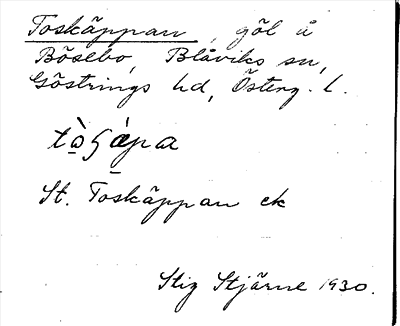 Toskäppan, göl å
Bösebo, Blåviks sn,
Göstrings hd, Österg. l.
St. Toskäppan ek
Stig Stjärne 1930.